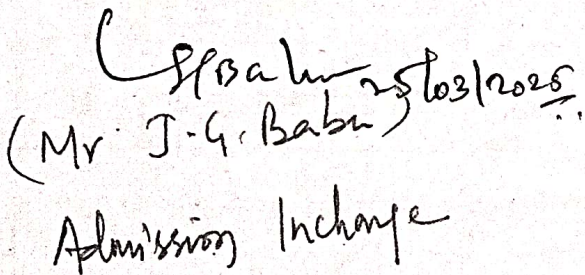 JGBabu 25/03/2025
(Mr. J.G. Babu)
Admission Incharge